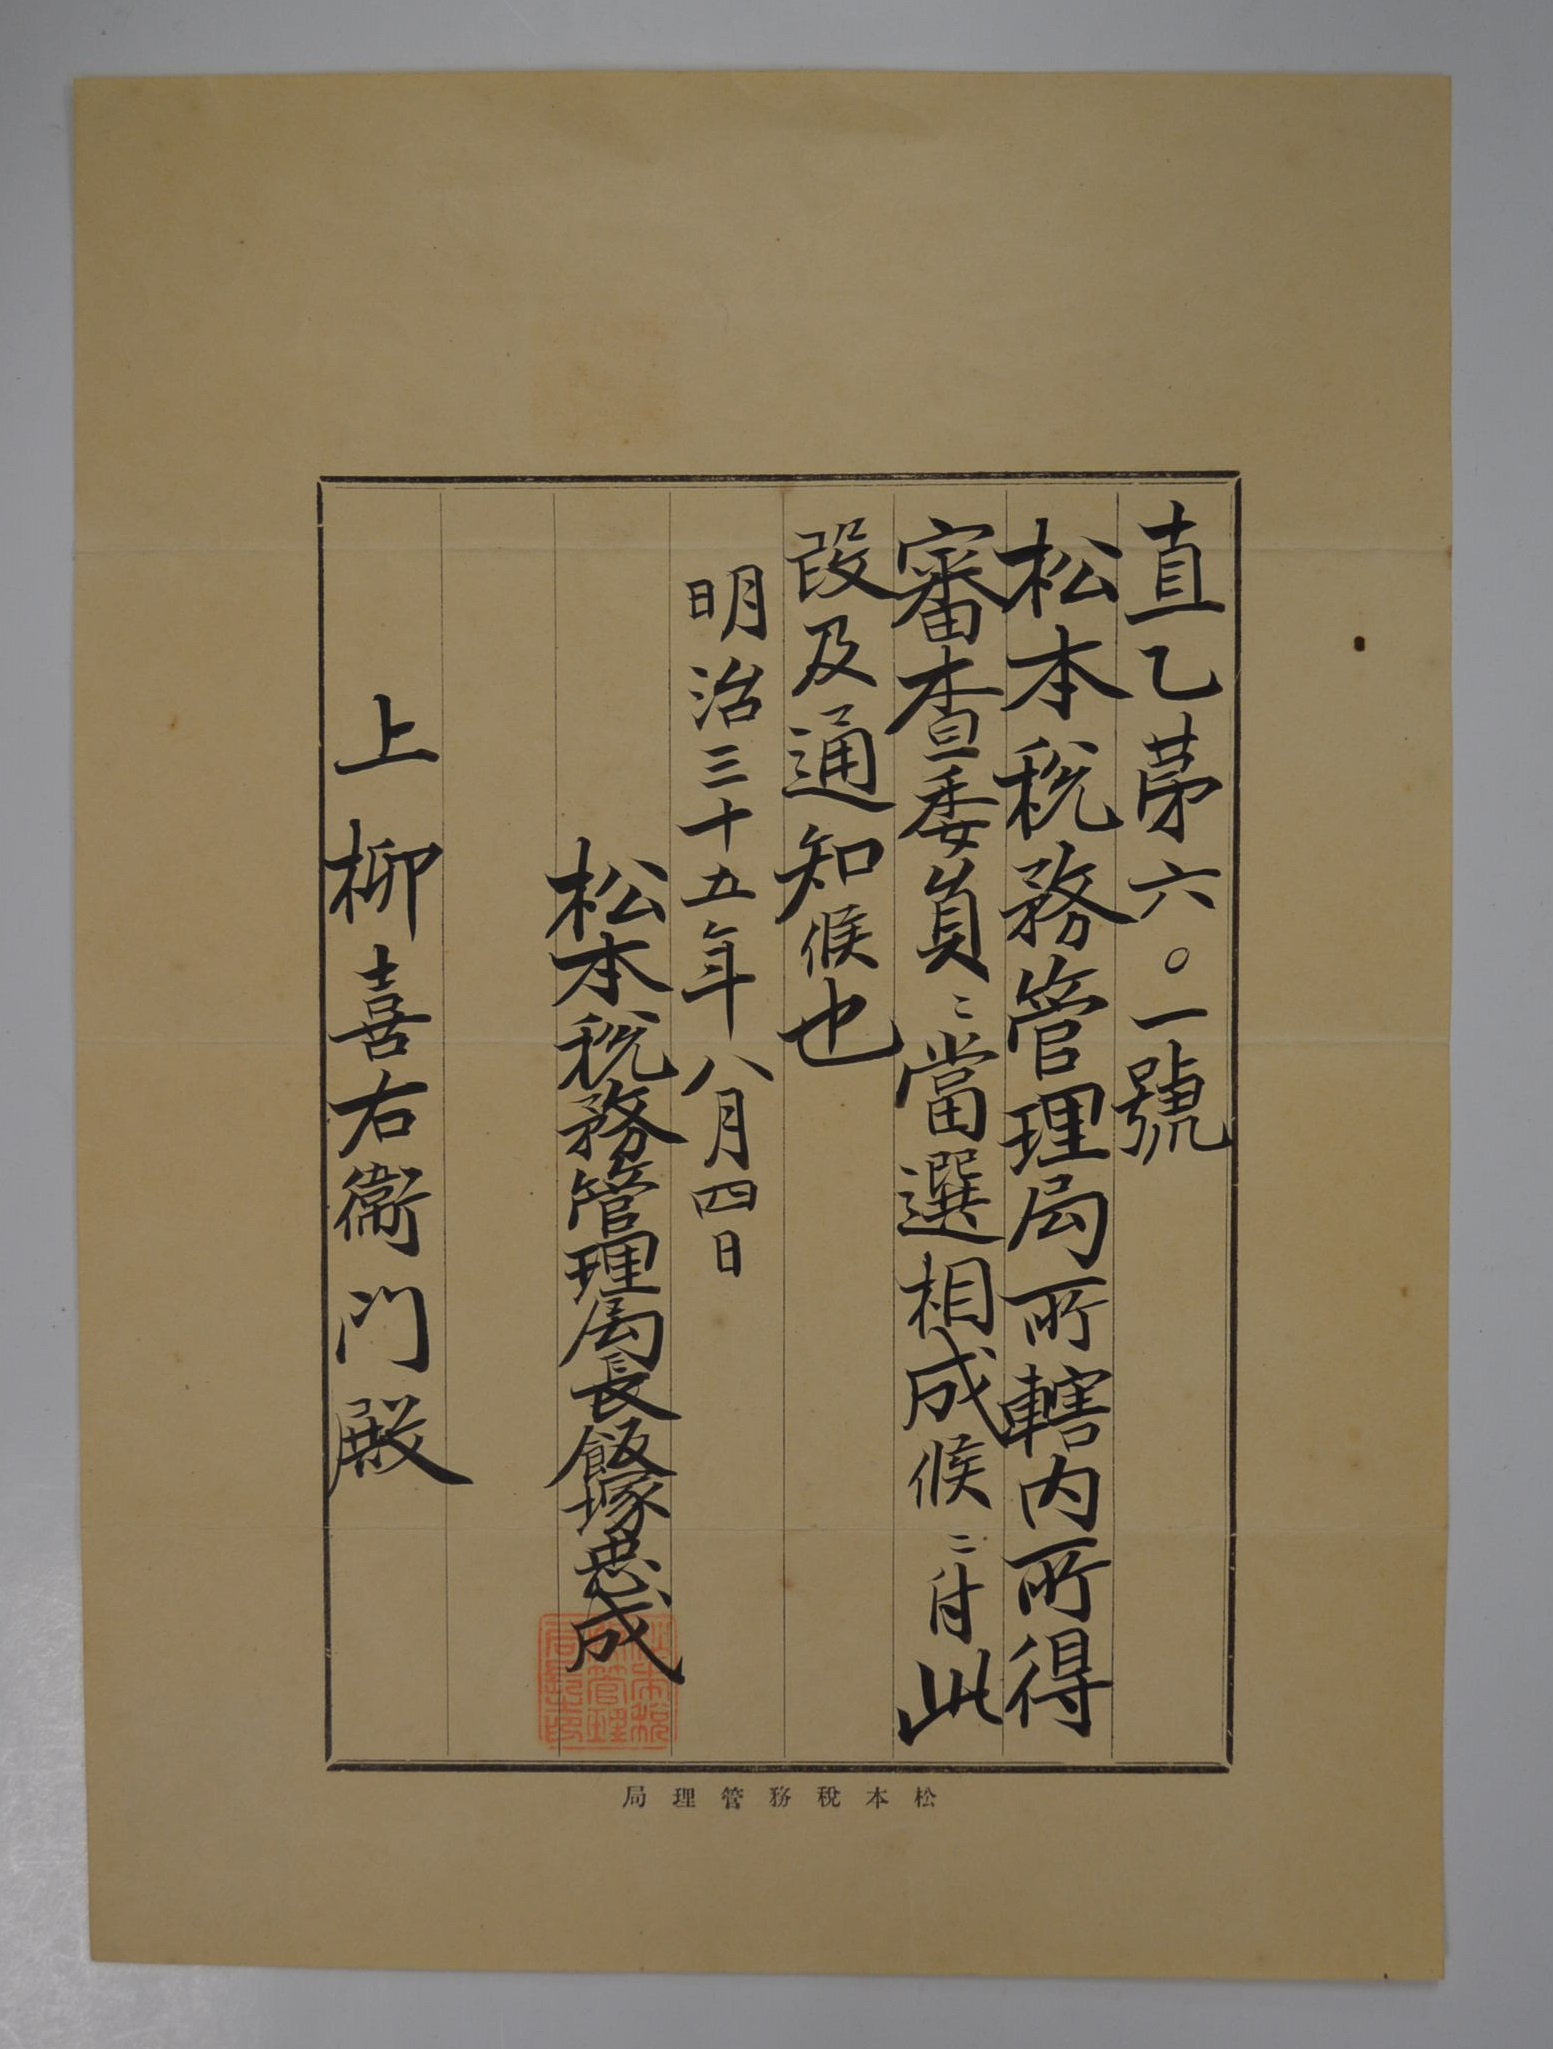 直乙苐六〇一號
松本税務管理局所轄内所得
審査委員ニ當選相成候ニ付此
段及通知候也
明治三十五年八月四日
松本税務管理局長飯塚忠成
松本税務管理局長印
上柳喜右衞门殿
松本稅務管理局